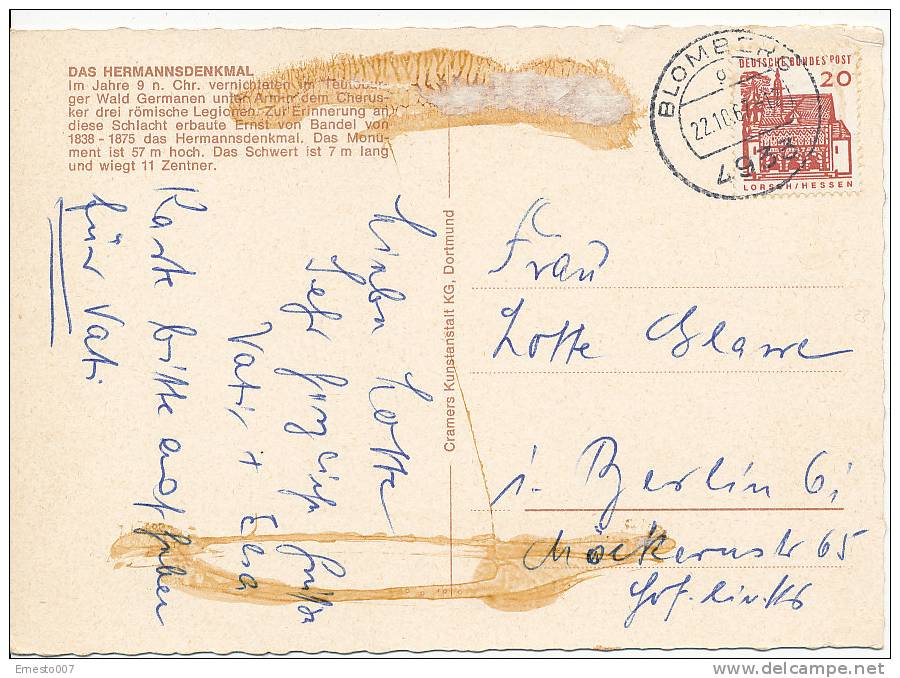 DAS HERMANNSDENKMAL
Im Jahre 9 n. Chr. vernichteten im Teutobur-
ger Wald Germanen unter Armin dem Cherus-
ker drei römische Legionen. Zur Erinnerung an
diese Schlacht erbaute Ernst von Bandel von
1838 - 1875 das Hermannsdenkmal. Das Monu-
ment ist 57 m hoch. Das Schwert ist 7 m lang
und wiegt 11 Zentner.
Liebe Lotte
Sehr
Vati + Elsa
Karte bitte aufheben
für Vati
Cramers Kunstanstalt KG, Dortmund
BLOMBERG
22.10.6
4933
DEUTSCHE BUNDESPOST
20
LORSCH/HESSEN
Frau
Lotte Glawe
1. Berlin 61
Möckernstr 65
Hof. links
Ernesto007
www.delcampe.net